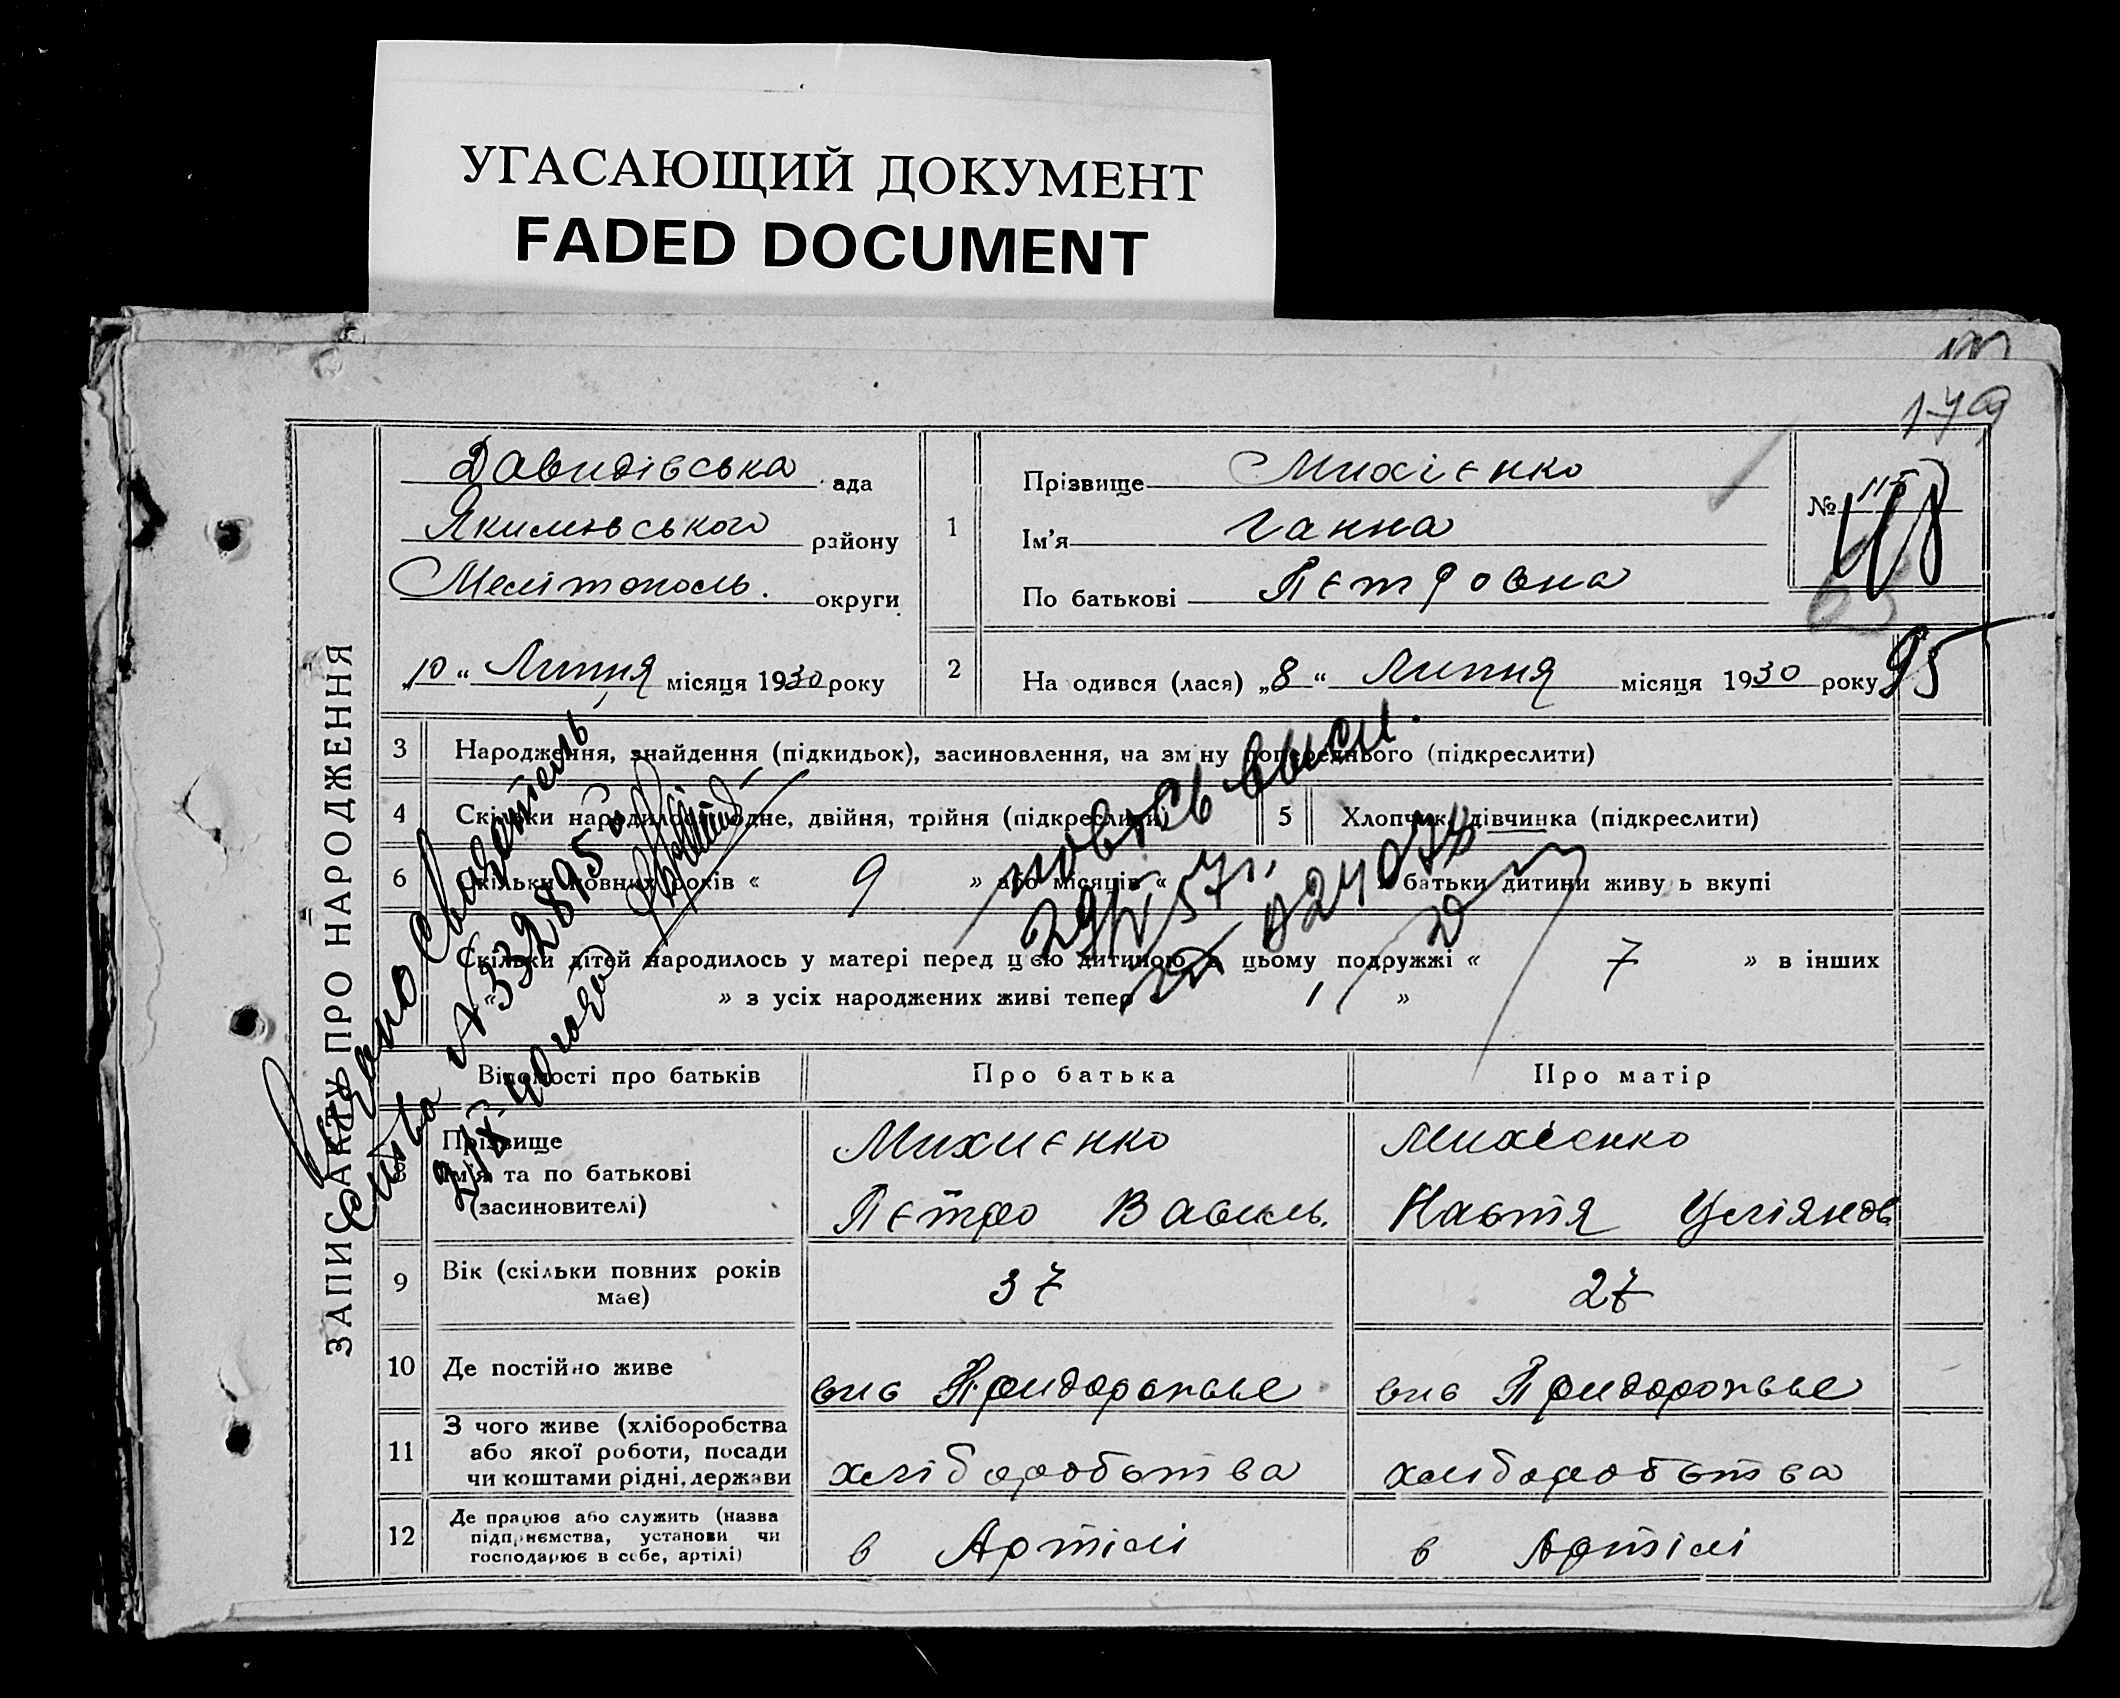 УГАСАЮЩИЙ ДОКУМЕНТ
FADED DOCUMENT
179
ЗАПИС АКТУ ПРО НАРОДЖЕННЯ
Давидівська ада
Якимівського району
Мелітополь. округи
„10“ Липня місяця 1930 року
1
Прізвище Михієнко
Ім'я Ганна
По батькові Пєтровна
№ 115
118
63
95
2
На одився (лася) „8“ Липня місяця 1930 року
3 Народження, знайдення (підкидьок), засиновлення, на зм ну попереднього (підкреслити)
4 Скільки народилось одне, двійня, трійня (підкреслити)
5 Хлопчик, дівчинка (підкреслити)
6 Скільки повних років « 9 » або місяців « » батьки дитини живу ь вкупі
Скільки дітей народилось у матері перед цією дитиною в цьому подружжі « 7 » в інших
« » з усіх народжених живі тепер »
Видано свідотель
ство № 332895
2/ІХ-40 года
повть выси.
29/ 57 г.
024074
Відомості про батьків
Про батька
Про матір
8
Прізвище
Ім'я та по батькові
(засиновителі)
Михиенко
Пєтро Василь.
Михієнко
Настя Улiянов
9 Вік (скільки повних років
має)
37
27
10 Де постійно живе
вис Придорожнье
вис Придорожнье
11
З чого живе (хліборобства
або якої роботи, посади
чи коштами рідні, держави
хліборобства
хліборобства
12
Де працює або служить (назва
підприємства, установи чи
господарює в себе, артілі)
в Артілі
в Артілі